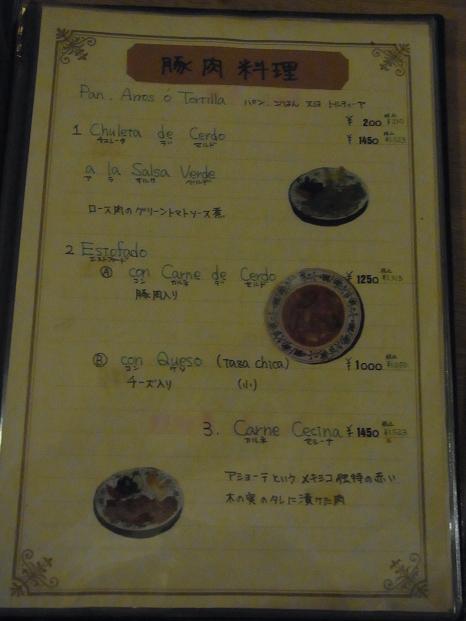 豚肉料理
Pan. Arros ó Tortilla パン. ごはん 又は トルティーア
¥ 200 税込 ¥210
1 Chuleta de Cerdo ¥ 1450 税込 ¥1523
チュレータ デ セルド
a la Salsa Verde
ア ラ サルサ ベルデ
ロース肉のグリーントマトソース煮
2 Estofado
エストファード
Ⓐ con Carne de Cerdo ¥ 1250 税込 ¥1313
コン カルネ デ セルド
豚肉入り
Ⓑ con Queso (Taza chica) ¥ 1000 税込 ¥1050
コン ケソ
チーズ入り (小)
3. Carne Cecina ¥ 1450 税込 ¥1523
カルネ セシーナ
アショーテという メキシコ独特の赤い
木の実のタレに漬けた肉